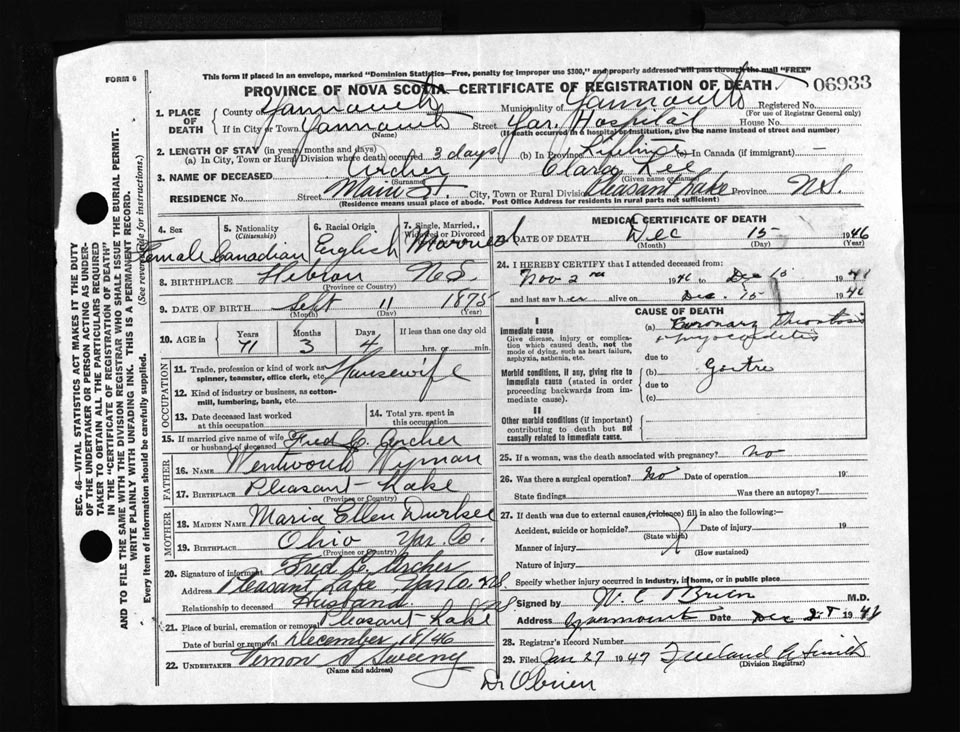 This form if placed in an envelope, marked "Dominion Statistics—Free, penalty for improper use $300," and properly addressed will pass through the mail "FREE"
FORM 6
PROVINCE OF NOVA SCOTIA—CERTIFICATE OF REGISTRATION OF DEATH.
06933
1. PLACE OF DEATH
County of Yarmouth Municipality of Yarmouth Registered No.
(For use of Registrar General only)
If in City or Town Yarmouth Street Yar. Hospital House No.
(Name) (If death occurred in a hospital or institution, give the name instead of street and number)
2. LENGTH OF STAY (in years, months and days)
(a) In City, Town or Rural Division where death occurred 3 days (b) In Province Lifetime (c) In Canada (if immigrant) —
3. NAME OF DECEASED Archer Clara Lee
(Surname) (Given name or names)
RESIDENCE No. Street Main St. City, Town or Rural Division Pleasant Lake Province N.S.
(Residence means usual place of abode. Post Office Address for residents in rural parts not sufficient)
SEC. 46—VITAL STATISTICS ACT MAKES IT THE DUTY
OF THE UNDERTAKER OR PERSON ACTING AS UNDER-
TAKER TO OBTAIN ALL THE PARTICULARS REQUIRED
IN THE "CERTIFICATE OF REGISTRATION OF DEATH"
AND TO FILE THE SAME WITH THE DIVISION REGISTRAR WHO SHALL ISSUE THE BURIAL PERMIT.
WRITE PLAINLY WITH UNFADING INK. THIS IS A PERMANENT RECORD.
Every item of information should be carefully supplied. (See reverse side for instructions.)
4. Sex 5. Nationality (Citizenship) 6. Racial Origin 7. Single, Married, Widowed or Divorced
Female Canadian English Married
8. BIRTHPLACE Hebron N.S.
(Province or Country)
9. DATE OF BIRTH Sept 11 1875
(Month) (Day) (Year)
10. AGE in Years Months Days If less than one day old
71 3 4 hrs. or min.
OCCUPATION
11. Trade, profession or kind of work as spinner, teamster, office clerk, etc. Housewife
12. Kind of industry or business, as cotton-mill, lumbering, bank, etc.
13. Date deceased last worked at this occupation
14. Total yrs. spent in this occupation
15. If married give name of wife or husband of deceased Fred C. Archer
FATHER
16. NAME Wentworth Wyman
17. BIRTHPLACE Pleasant Lake
(Province or Country)
MOTHER
18. MAIDEN NAME Maria Ellen Durkee
19. BIRTHPLACE Ohio Yar. Co.
(Province or Country)
20. Signature of informant Fred C. Archer
Address Pleasant Lake, Yar. Co. N.S.
Relationship to deceased Husband
21. Place of burial, cremation or removal Pleasant Lake N.S.
Date of burial or removal December 18/46
22. UNDERTAKER Vernon Sweeny
(Name and address)
MEDICAL CERTIFICATE OF DEATH
DATE OF DEATH Dec 15 1946
(Month) (Day) (Year)
24. I HEREBY CERTIFY that I attended deceased from:
Nov 2 1946 to Dec 15 1946
and last saw her alive on Dec. 15 1946
CAUSE OF DEATH
I
Immediate cause
Give disease, injury or complication which caused death, not the mode of dying, such as heart failure, asphyxia, asthenia, etc.
(a) Coronary
myocarditis
due to
Morbid conditions, if any, giving rise to immediate cause (stated in order proceeding backwards from immediate cause).
(b) Goitre
due to
(c)
II
Other morbid conditions (if important) contributing to death but not causally related to immediate cause.
25. If a woman, was the death associated with pregnancy? No
26. Was there a surgical operation? No Date of operation 19
State findings Was there an autopsy?
27. If death was due to external causes (violence) fill in also the following:—
Accident, suicide or homicide? Date of injury 19
(State which)
Manner of injury
(How sustained)
Nature of injury
Specify whether injury occurred in Industry, in home, or in public place
Signed by W. C. O'Brien M.D.
Address Yarmouth Date Dec 1946
28. Registrar's Record Number
29. Filed Jan 27 1947 Freeland A Smith
(Division Registrar)
Dr O'brien